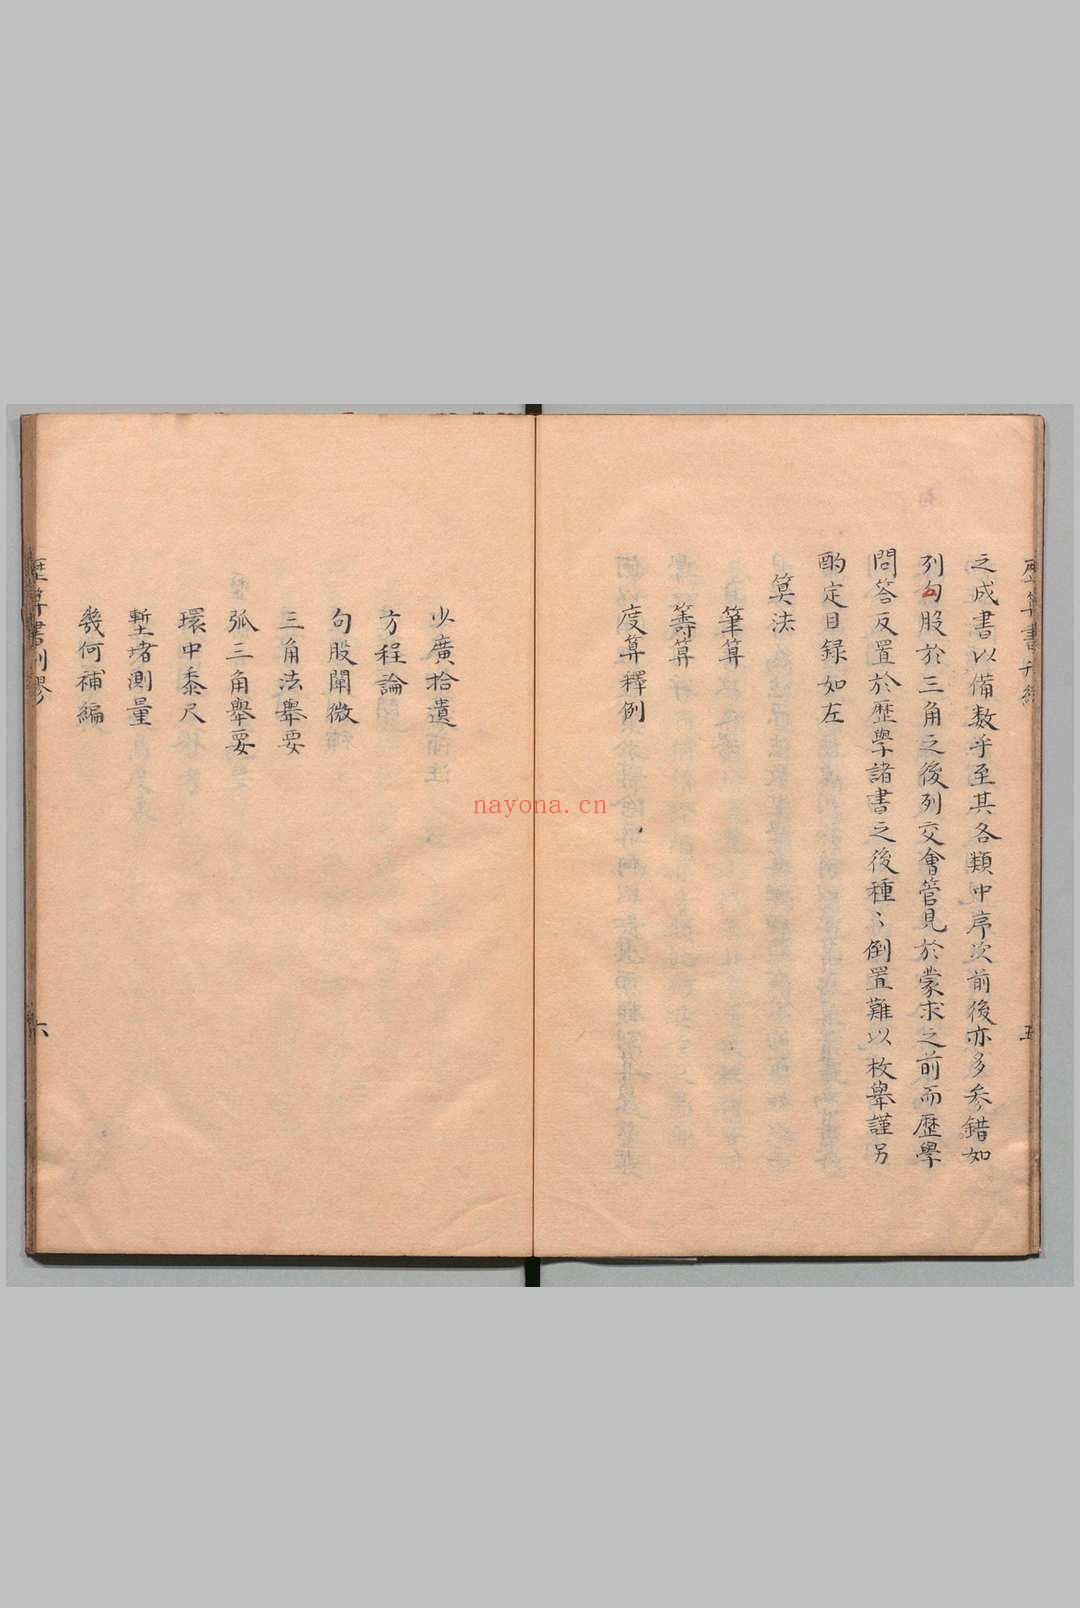 之成書以備数乎至其各類中序次前後亦多参錯如
列句股於三角之後列交會管見於蒙求之前而歴學
問答反置於歴學諸書之後種〻倒置難以枚舉謹另
酌定目録如左
算法
筆算
籌算
度算釋例
少廣拾遺
方程論
句股闡微
三角法舉要
弧三角舉要
環中黍尺
塹堵測量
幾何補編
歴算書刋謬
六
五
nayona.cn